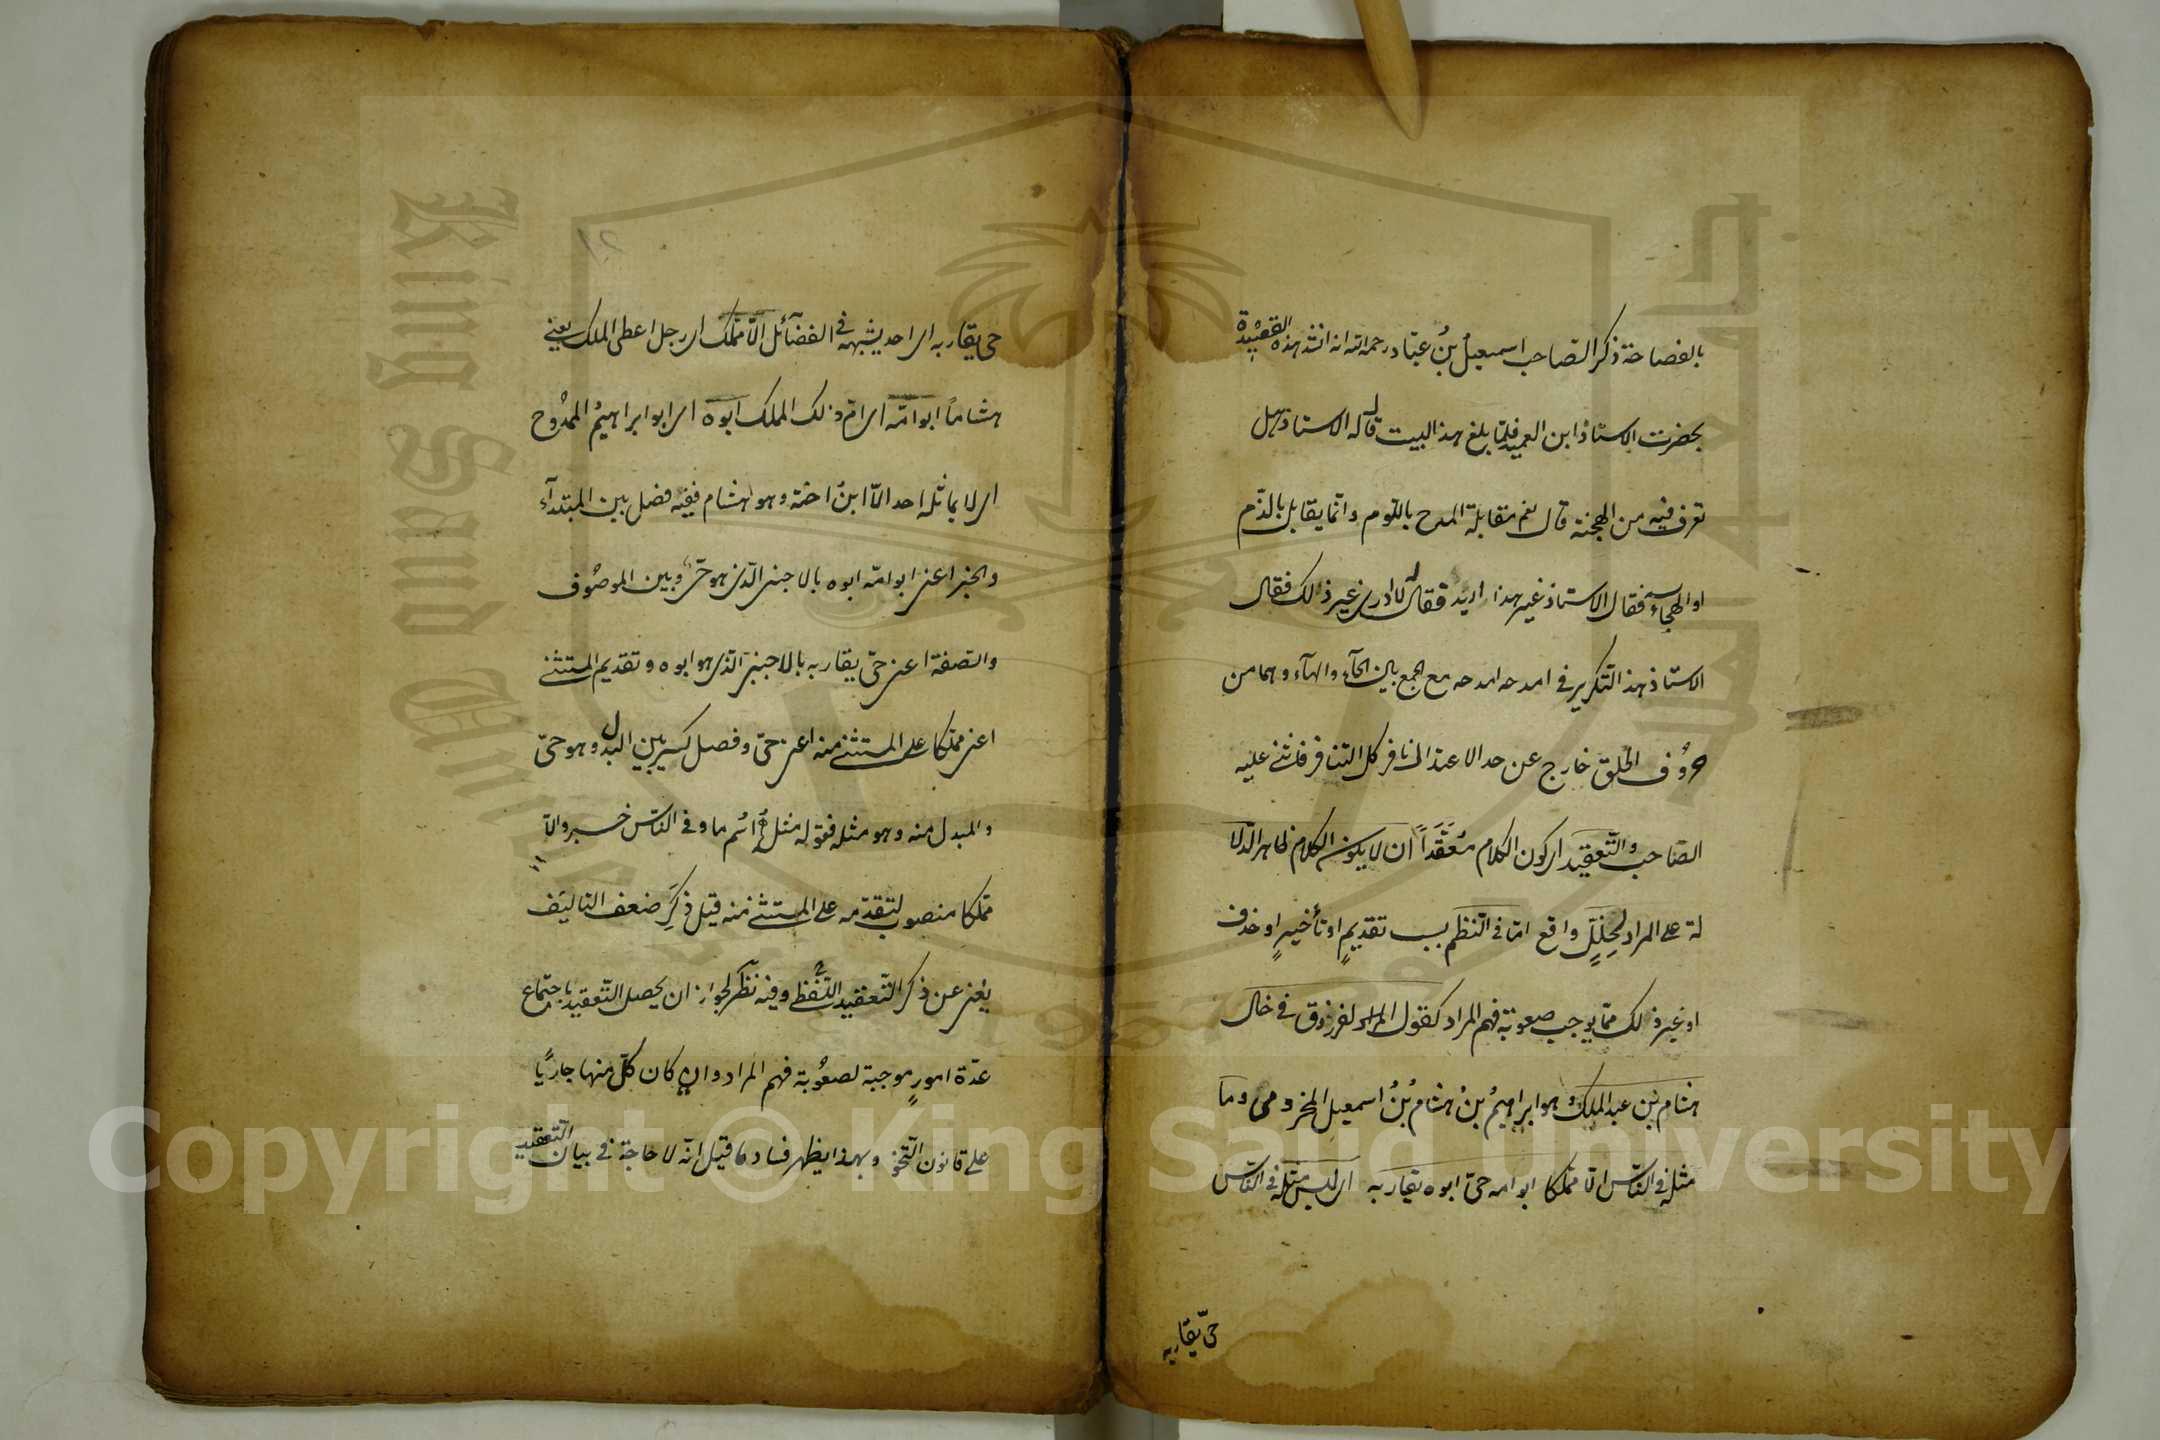 بالفصاحة ذكر الصّاحب اسمعيلُ بنُ عبّاد رحمه الله انه انشد هذه القصيدة
بحضرت الاستاذ ابن العميد فلمّا بلغ هذا البيت قال له الاستاذ هل
تعرف فيه من الهجنة قال نعم مقابلة المدح باللّوم وانّما يقابل بالذّم
او الهجاء فقال الاستاذ غير هذا اريد فقال لا ادرى غير ذلك فقال
الاستاذ هذا التكرير فى امدحه امدحه مع الجمع بين الحآء والهآء وهما من
حروُف الحلق خارج عن حد الاعتدال نافر كل التنافر فاثنى عليه
الصّاحب والتّعقيد اى كون الكلام مُعَقَّداً ان لا يكون الكلام ظاهر الدّلا
لة على المراد لِخَلَلٍ واقع امّا فى النّظم بسبب تقديمٍ او تأخيرٍ او حذف
او غير ذلك ممّا يوجب صعوبة فهم المراد كقول الفرزدق فى خال
هشام بن عبد الملك وهو ابراهيمُ بنُ هشامُ بنُ اسمعيل المخزومى وما
مثله فى النّاس الّا مملّكا ابو امه حىّ ابوه يقاربه اى ليس مثله فى النّاس
حىّ يقاربه
حى يقاربه اى احد يشبهه فى الفضآئل الّا مملّك اى رجل اعطى الملك يعنى
هشاماً ابو امّه اى امّ ذلك الملك ابوه اى ابو ابراهيمُ الممدُوح
اى لا يماثله احد الّا ابنُ اخته وهو هشام ففيه فصل بين المبتدآء
والخبر اعنى ابو امّه ابوه بالاجنبى الّذى هو حىّ وبين الموصُوف
والصّفة اعنى حىّ يقاربه بالاجنبى الّذى هو ابوه وتقديم المستثنى
اعنى مملّكا على المستثنى منه اعنى حىّ وفصل كثير بين البدل وهو حىّ
والمبدل منه وهو مثله فقوله مثلُهُ اسُم ما وفى النّاس خبره والّا
مملّكا منصوب لتقدّمه على المستثنى منه قيل ذَكَرَ ضعف التاليف
يُغنى عن ذكر التّعقيد اللّفظى وفيه نظر لجواز ان يحصل التّعقيد باجتماع
عدّة امورٍ موجبة لصعُوبة فهم المراد وان كان كلّ منها جاريًا
على قانون النّحو وبهذا يظهر فساد ما قيل انّه لا حاجة فى بيان التّعقيد
Copyright © King Saud University